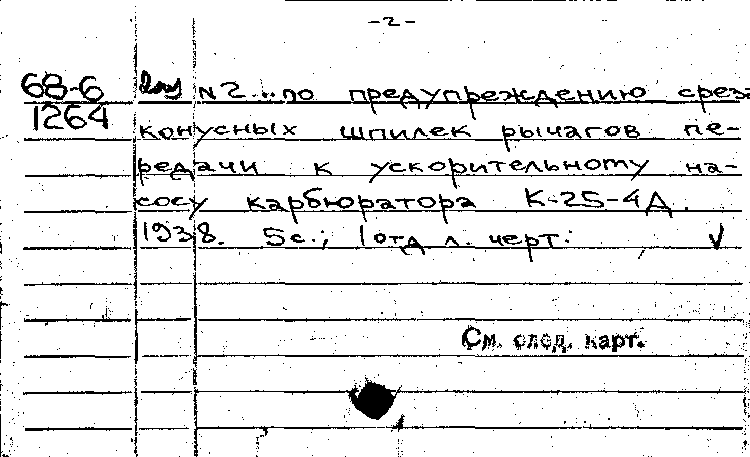 -2-
68-6 N2...по предупреждению среза
1264 конусных шпилек рычагов пе-
редачи к ускорительному на-
сосу карбюратора К-25-4Д.
1938. 5с.; 1 отд л. черт.
См. след. карт.